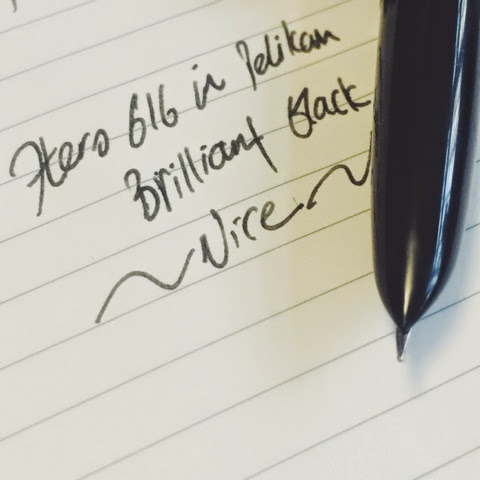 Hero 616 in Pelikan
Brilliant Black
~Nice~